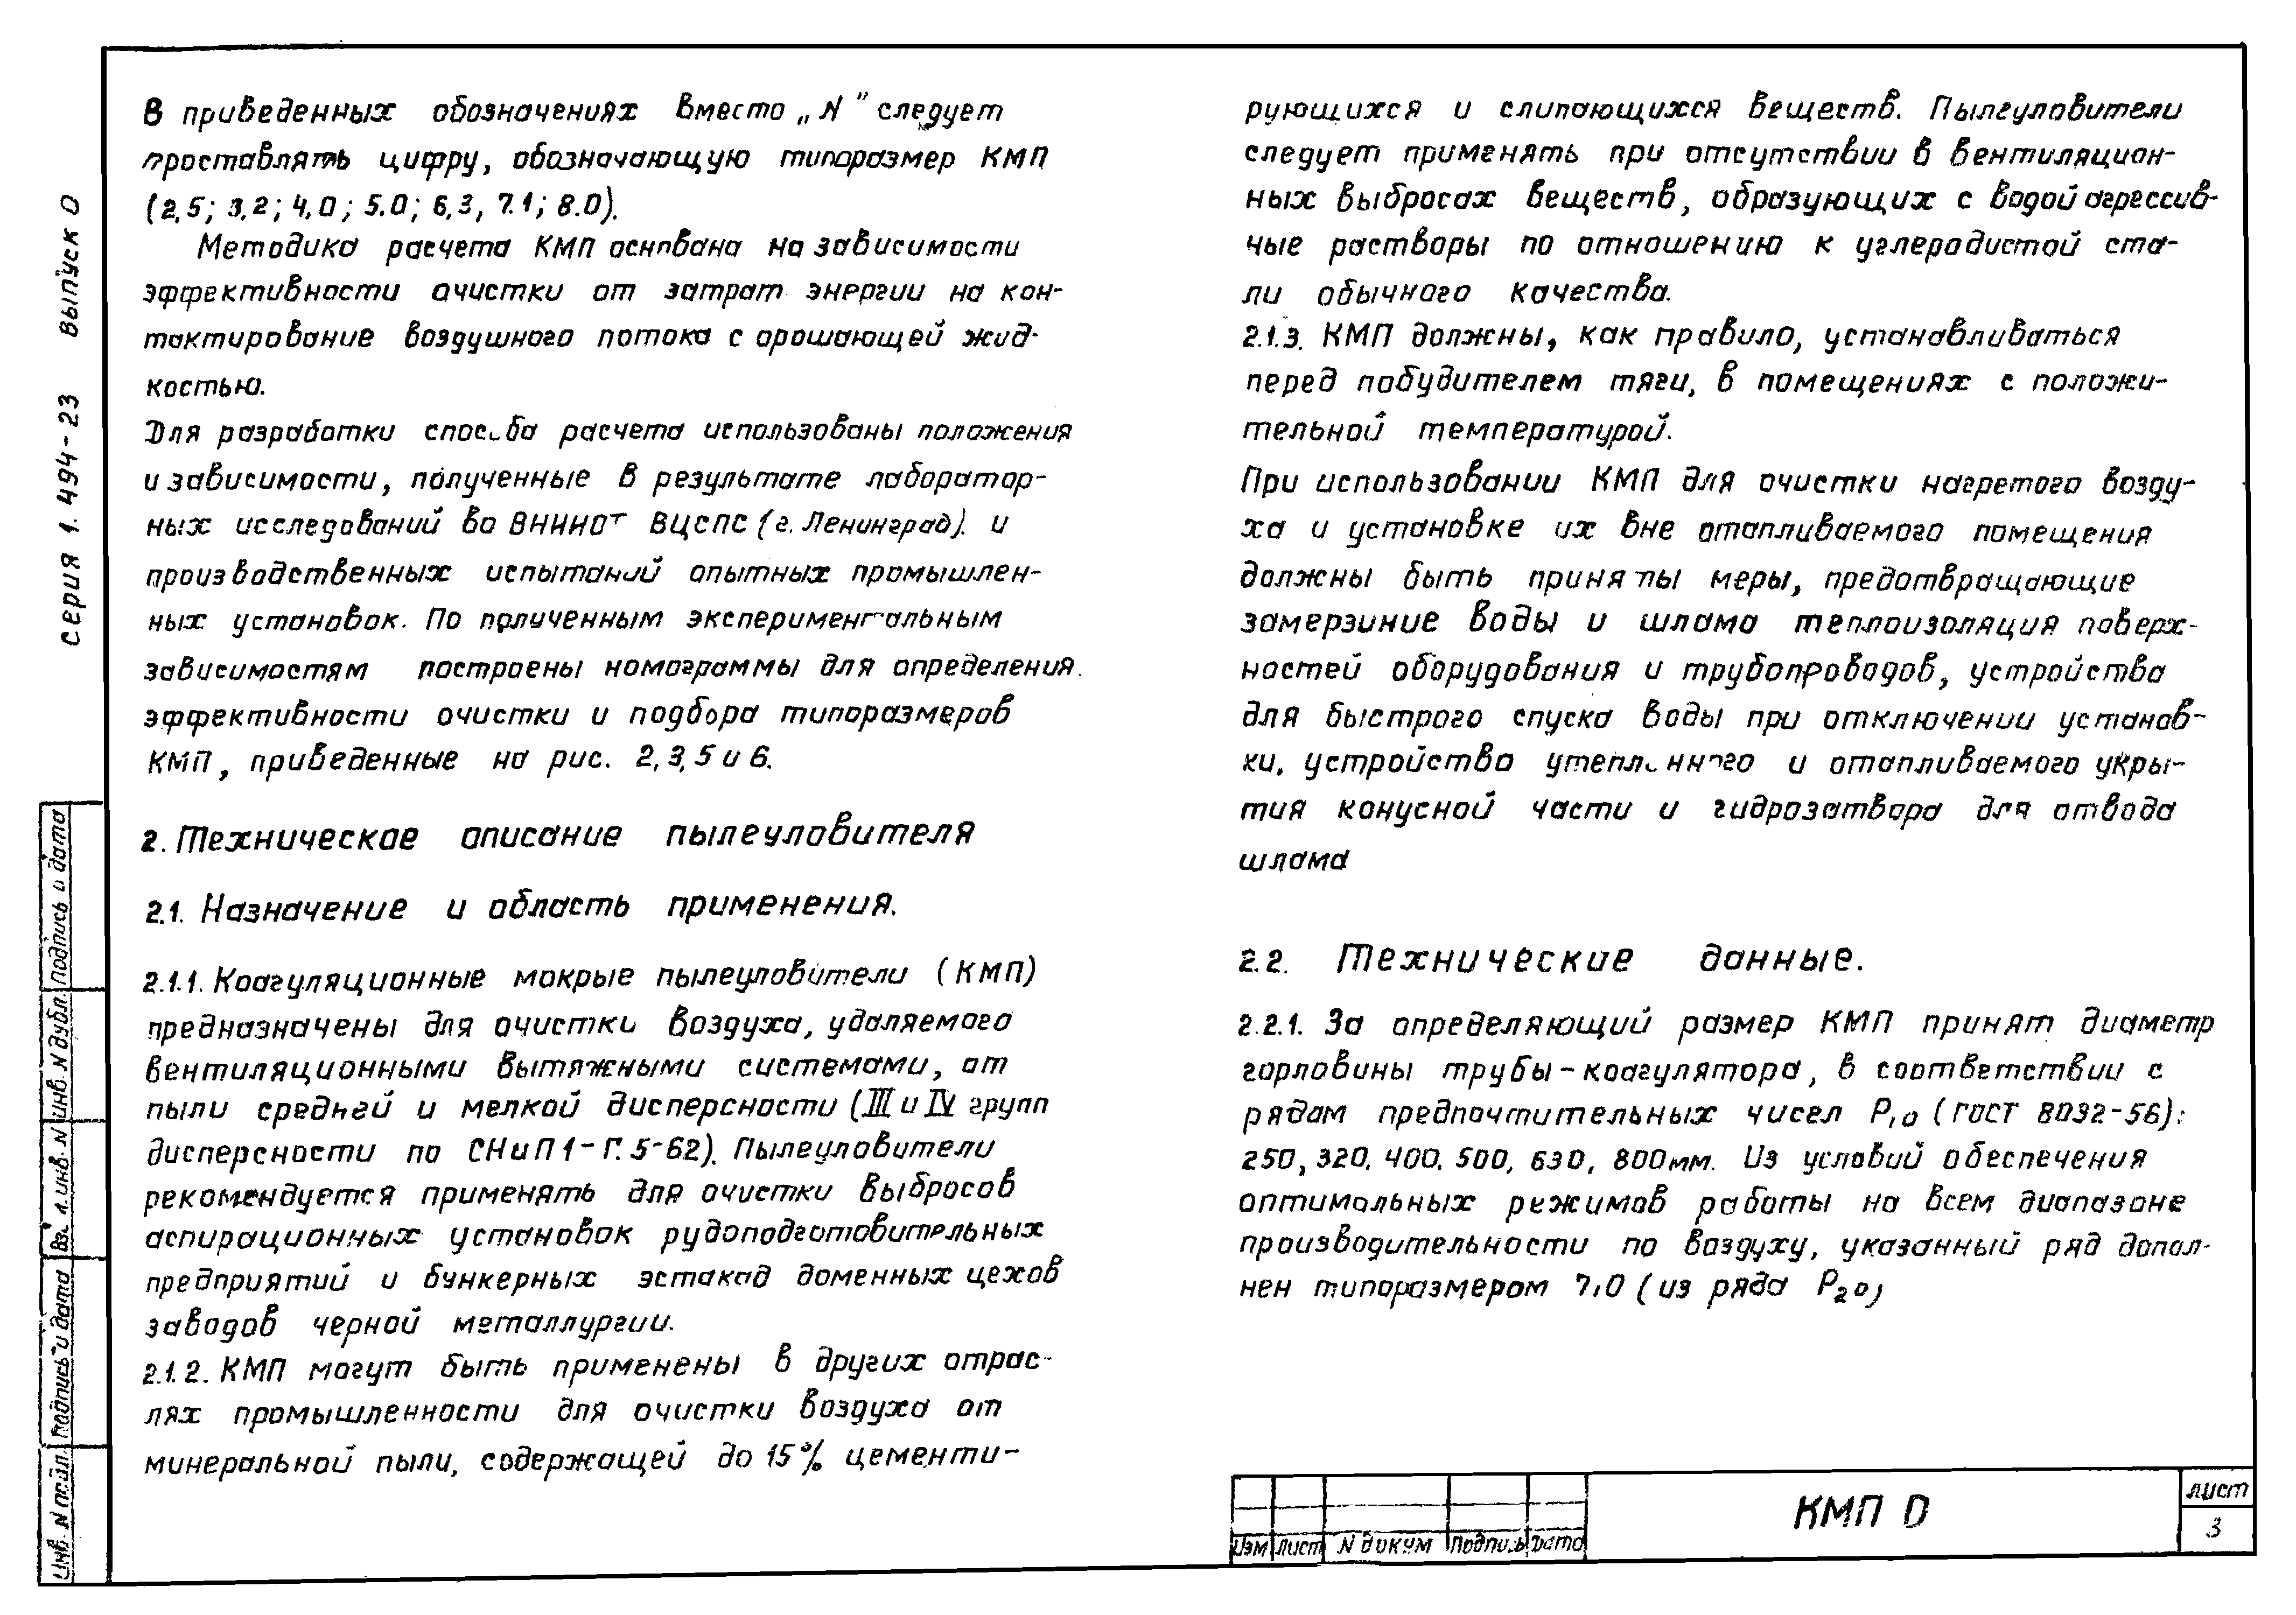 В приведенных обозначениях вместо „N" следует
проставлять цифру, обозначающую типоразмер КМП
(2,5; 3,2; 4,0; 5.0; 6,3, 7.1; 8.0).
Методика расчета КМП основана на зависимости
эффективности очистки от затрат энергии на кон-
тактирование воздушного потока с орошающей жид-
костью.
Для разработки способа расчета использованы положения
и зависимости, полученные в результате лаборатор-
ных исследований во ВНИИОТ ВЦСПС (г. Ленинград). и
производственных испытаний опытных промышлен-
ных установок. По полученным экспериментальным
зависимостям построены номограммы для определения
эффективности очистки и подбора типоразмеров
КМП, приведенные на рис. 2, 3, 5 и 6.
2. Техническое описание пылеуловителя
2.1. Назначение и область применения.
2.1.1. Коагуляционные мокрые пылеуловители (КМП)
предназначены для очистки воздуха, удаляемого
вентиляционными вытяжными системами, от
пыли средней и мелкой дисперсности (III и IV групп
дисперсности по СНиП 1-Г. 5-62). Пылеуловители
рекомендуется применять для очистки выбросов
аспирационных установок рудоподготовительных
предприятий и бункерных эстакад доменных цехов
заводов черной металлургии.
2.1.2. КМП могут быть применены в других отрас-
лях промышленности для очистки воздуха от
минеральной пыли, содержащей до 15% цементи-
рующихся и слипающихся веществ. Пылеуловители
следует применять при отсутствии в вентиляцион-
ных выбросах веществ, образующих с водой агрессив-
ные растворы по отношению к углеродистой ста-
ли обычного качества.
2.1.3. КМП должны, как правило, устанавливаться
перед побудителем тяги, в помещениях с положи-
тельной температурой.
При использовании КМП для очистки нагретого возду-
ха и установке их вне отапливаемого помещения
должны быть приняты меры, предотвращающие
замерзиние воды и шлама теплоизоляция поверх-
ностей оборудования и трубопроводов, устройства
для быстрого спуска воды при отключении установ-
ки, устройство утепленного и отапливаемого укры-
тия конусной части и гидрозатвора для отвода
шлама
2.2. Технические данные.
2.2.1. За определяющий размер КМП принят диаметр
горловины трубы-коагулятора, в соответствии с
рядам предпочтительных чисел P₁₀ (ГОСТ 8032-56):
250, 320, 400, 500, 630, 800мм. Из условий обеспечения
оптимальных режимов работы на всем диапазоне
производительности по воздуху, указанный ряд допол-
нен типоразмером 7,0 (из ряда P₂₀)
серия 1.494-23 выпуск 0
Подпись и дата
Инв. N дубл.
Вз. инв. N
Подпись и дата
Инв. N подл.
Изм Лист N докум Подпись Дата
КМП О
лист
3